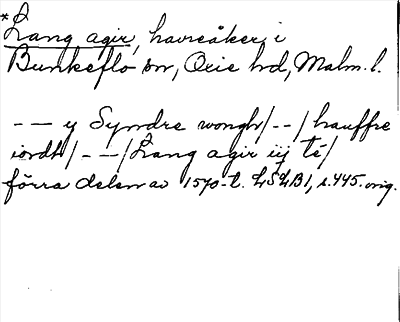 *Lang agir, havreåker i
Bunkeflo sn, Oxie hd, Malm. l.
— — y Syndre wongh/ - - / hauffre
iordh/ - — / Lang agir iij te/
förra delen av 1570-t. LSLB1, s. 445. orig.